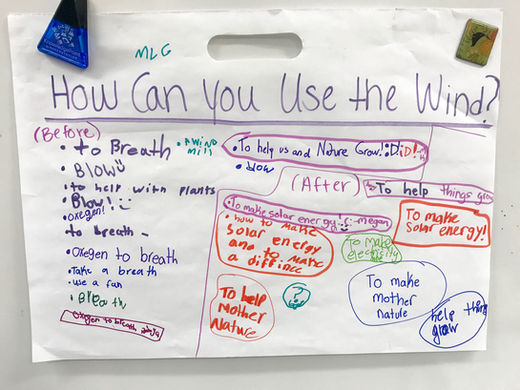 MLG
How Can You Use the Wind?
(Before)
• to Breath
• Blow
• to help with plants
• Blow!
• oxegen!
to breath -
Oxegen to breath
• Take a breath
• use a fan
• Breath
Oxegen to breath
• A Wind
Mill
• To help us and Nature Grow! DiD!
• blow
(After)
To help things grow
• To make solar energy :) - megan
To make
solar energy!
• how to make
solar energy
and to make
a diffince
To make
electricity
To help
Mother
Nature
?
To make
mother
nature
help thing
grow